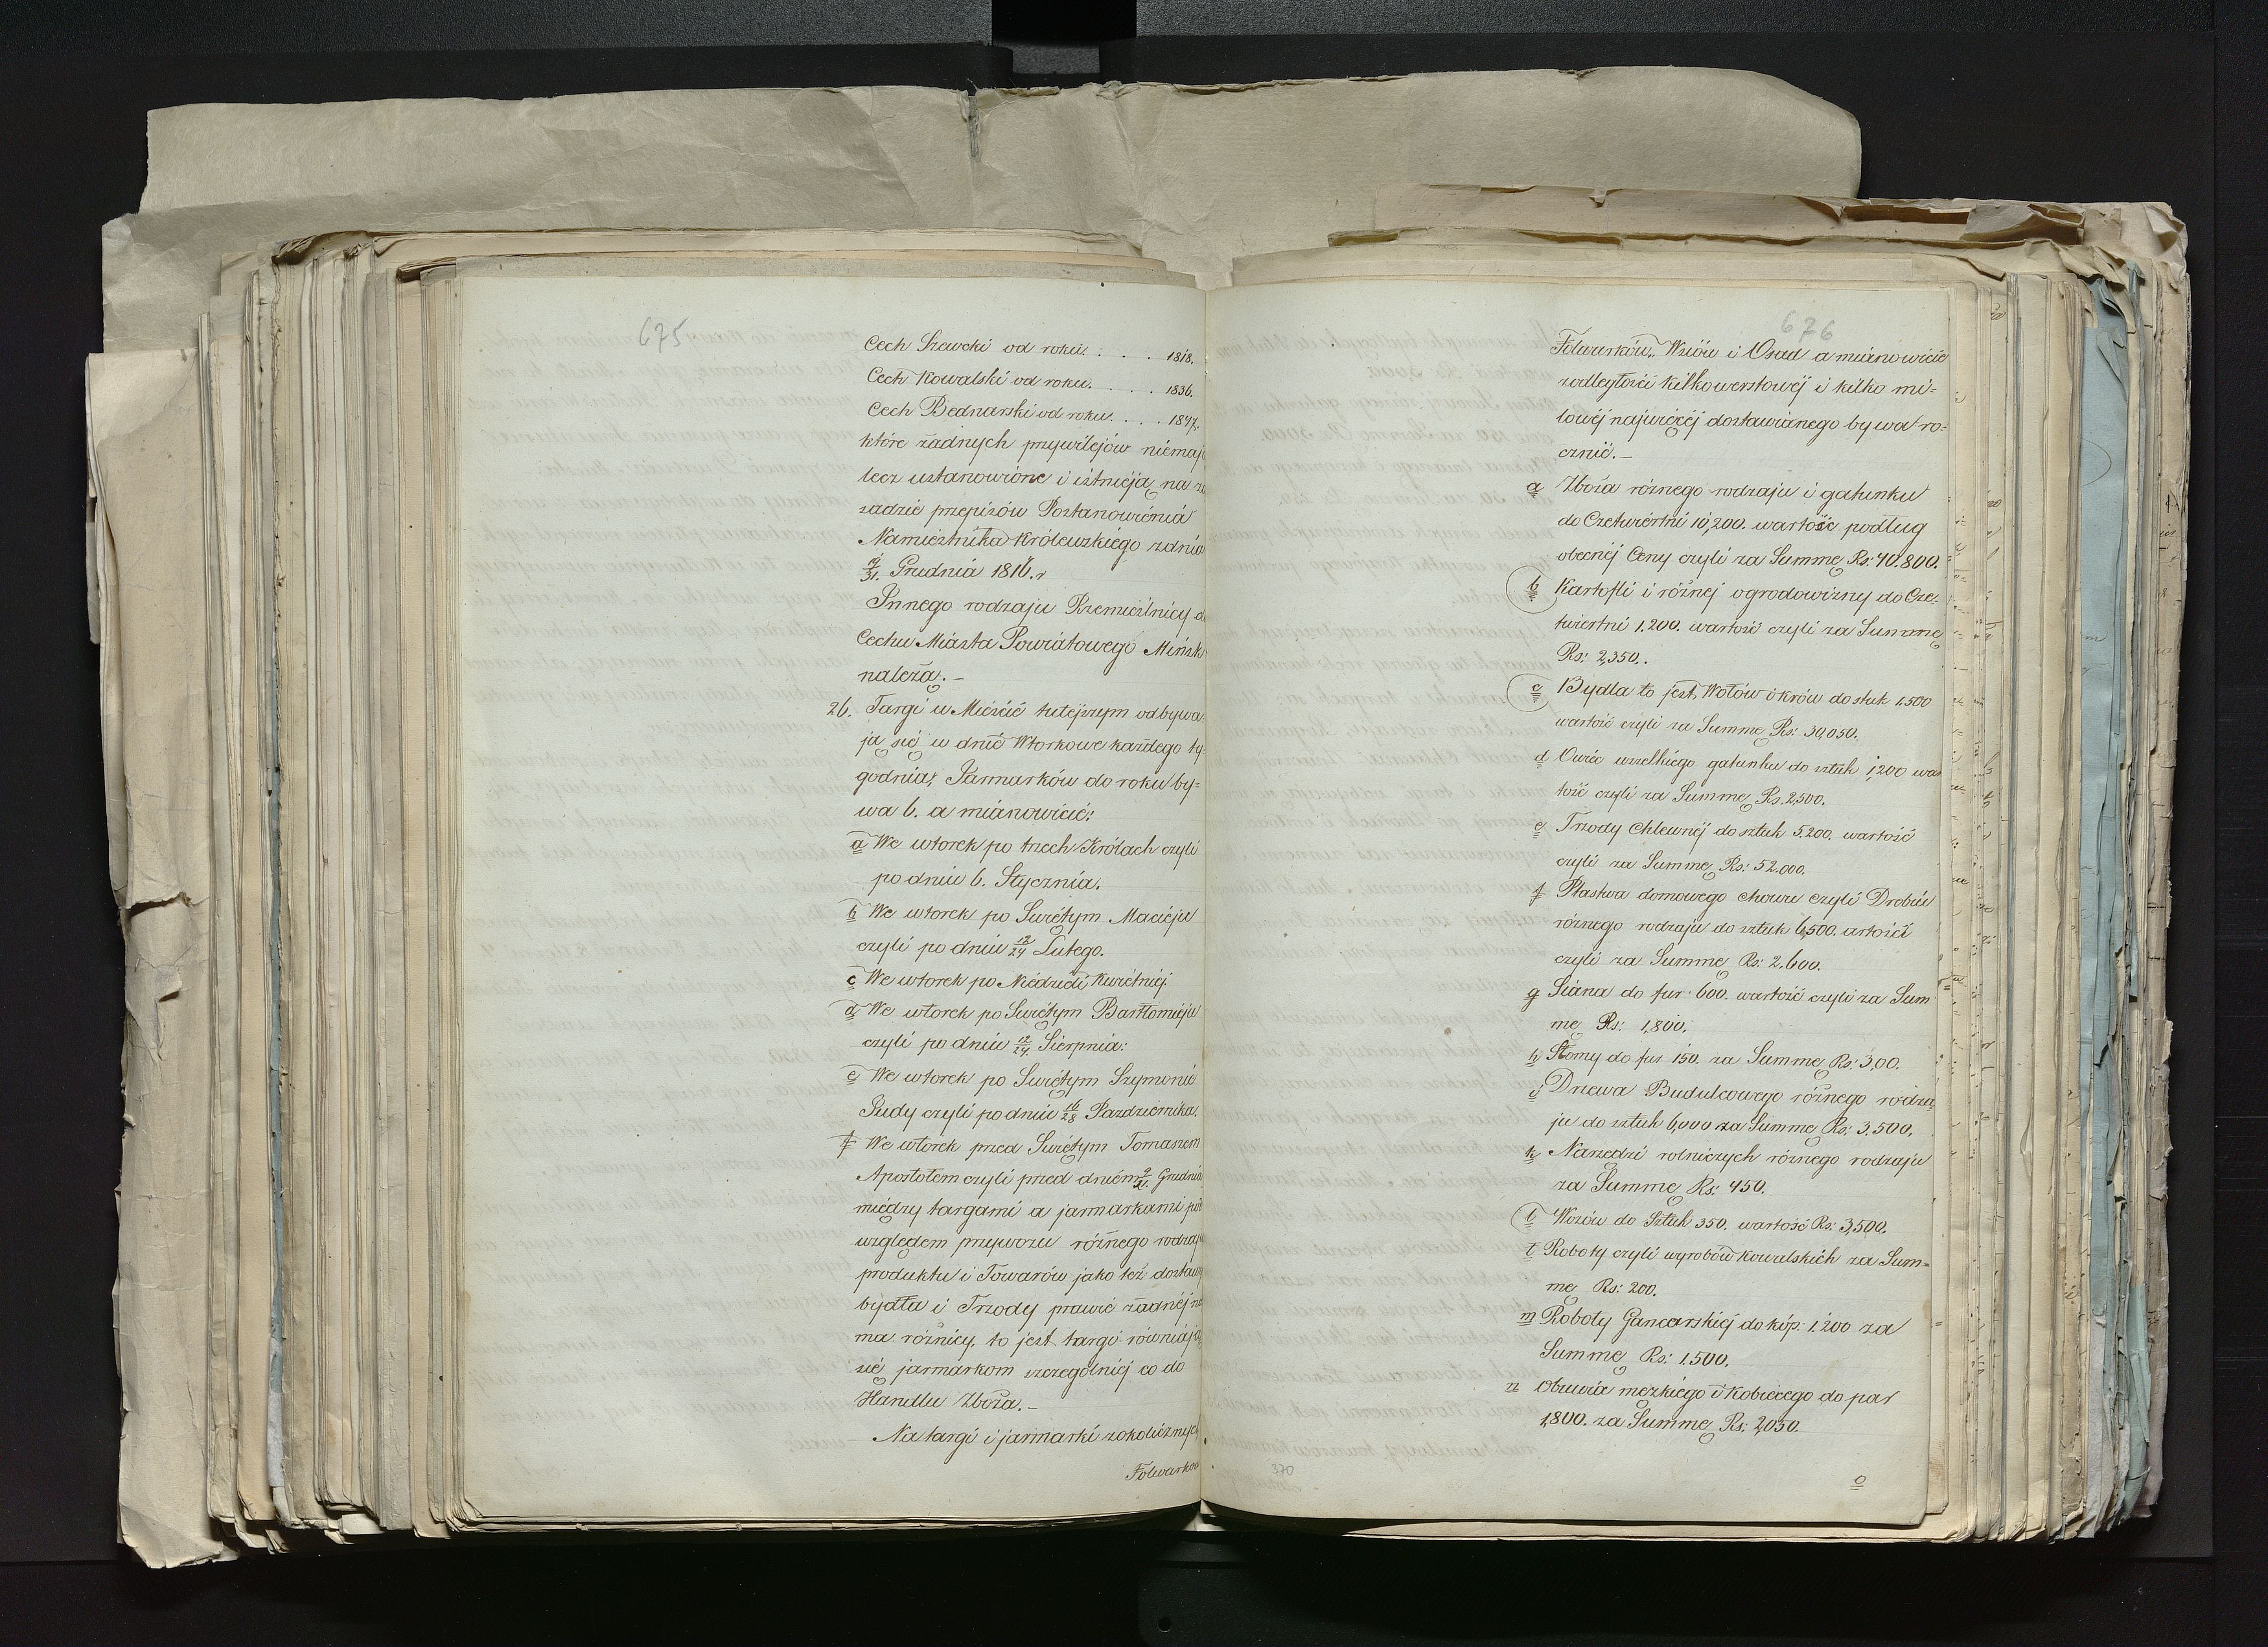 675
Cech Szewcki od roku. . . . 1818.
Cech Kowalski od roku. . . . . 1836.
Cech Bednarski od roku. . . . 1847.
które żadnych przywilejów niemają
lecz ustanowione i istnieją na za
sadzie przepisów Postanowienia
Namiestnika Królewskiego zdnia
31. Grudnia 1816. r
Innego rodzaju Rzemieślnicy do
Cechu Miasta Powiatowego Mińsk
należą.—
26. Targi w Mieście tutejszym odbywa:
ją się w dnie Wtorkowe każdego ty:
godnia; Jarmarków do roku by=
wa 6. a mianowicie:
a We wtorek po trzech Królach czyli
po dniu 6. Stycznia.
b We wtorek po Świętym Macieju
czyli po dniu 12/24 Lutego.
c We wtorek po Niedzieli Kwietniej
d We wtorek po Świętym Bartłomieju
czyli po dniu 12/24 Sierpnia:
e We wtorek po Świętym Szymonie
Judy czyli po dniu 16/28 Pazdziernika.
f We wtorek przed Świętym Tomaszem
Apostołem czyli przed dniem 9/21 Grudnia
między targami a jarmarkami pod
względem przywozu różnego rodzaju
produktu i Towarów jako też dostawy
bydła i Trzody prawie żadnéj nie
ma różnicy, to jest targi równiają
się jarmarkom szczególniej co do
Handlu Zboża.—
Na targi i jarmarki zokolicznych
Folwarków
676
Folwarków, Wsiów i Osad a mianowicie
zodległości kilkowerstowéj i kilko mi=
lowéj najwięcéj dostawianego bywa ro=
cznie.—
a Zboża róznego rodzaju i gatunku
do Czetwiertni 10,200. wartość podług
obecnéj Ceny czyli za Summę Rs: 40.800.
b Kartofli i róžnej ogrodowizny do Cze:
twiertni 1.200. wartość czyli za Summę
Rs: 2,350.
c Bydla to jest Wołów i krów do stuk 1,500
wartość czyli za Summę Rs: 30,050.
d Owiec wszelkiego gatunku do sztuk 1,200 war
tość czyli za Summę Rs. 2,500.
e Trzody Chlewnéj do sztuk 5,200. wartość
czyli za Summę Rs: 52.000.
f Ptastwa domowego chowu czyli Drobiu
różnego rodzaju do sztuk 6,500. artości
czyli za Summę Rs: 2.600.
g Siana do fur 600. wartość czyli za Sum
mę Rs: 1,800.
h Słomy do fur 150. za Summę Rs: 3,00.
i Drzewa Budulcowego różnego rodza
ju do sztuk 6,000 za Summę Rs: 3,500.
k Narzędzi rolniczych róznego rodzaju
za Summę Rs: 450.
l Wozów do Sztuk 350. wartość Rs: 3,500.
ł Roboty czyli wyrobów kowalskich za Sum=
mę Rs: 200.
m Roboty Garncarskiéj do kóp: 1.200 za
Summę Rs: 1.500.
n Obuwia męzkiego i Kobiecego do par
1,800. za Summę Rs: 2,050.
370
o